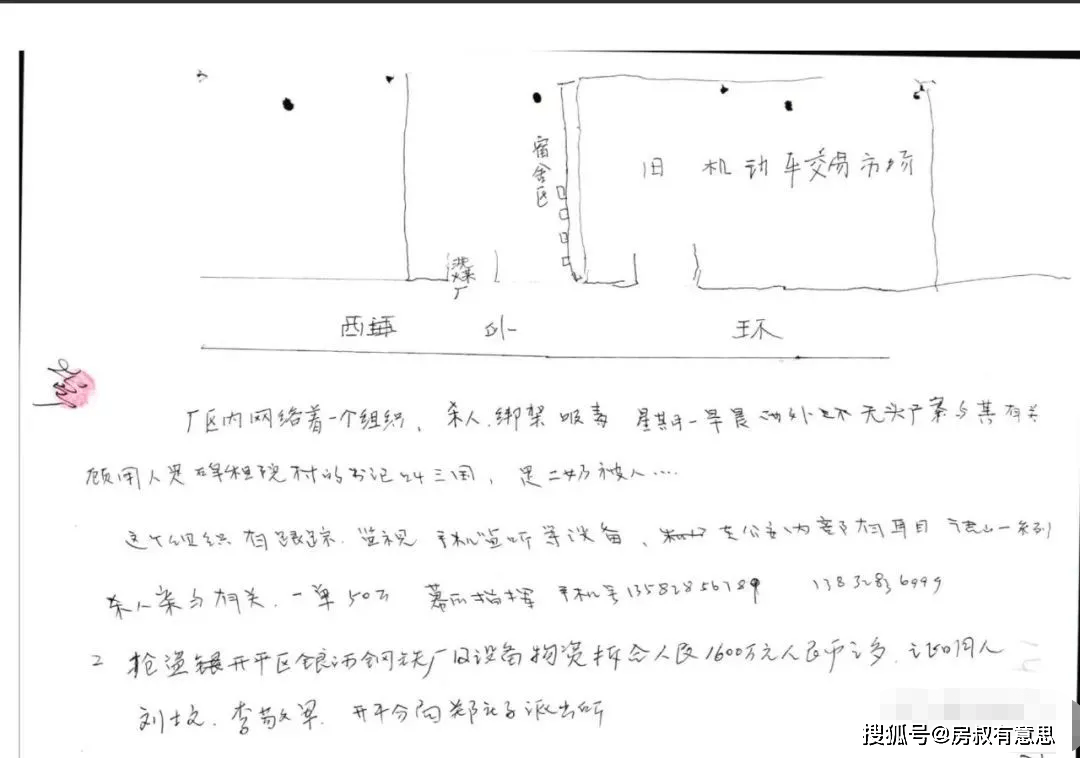 宿舍区
旧 机动车交易市场
厂
西 外 环
厂区内网络着一个组织、杀人.绑架 吸毒 星期一早晨 西外环 无头尸案与其有关
顾用人是 村的书记 三国, 是二奶被人....
这个组织有跟踪.监视 手机监听等设备、 在公安内部有耳目 唐山一系列
杀人案与有关、一单50万 幕后指挥 手机号13582856789 13832836999
2 抢盗 开平区银沥钢铁厂及设备物资折合人民1600万元人民币之多. 证明人
刘士文. 李 . 开平分局郑庄子派出所
搜狐号@房叔有意思